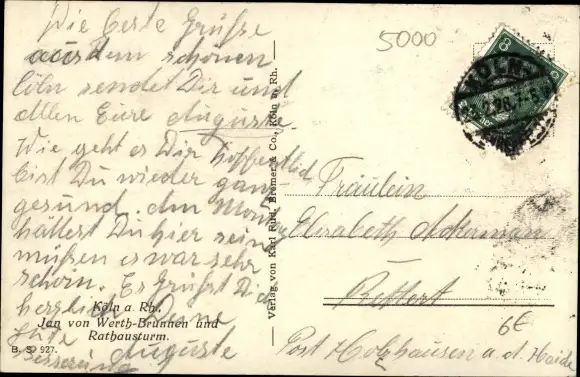 Die beste Grüße
aus dem schönen
Cöln sendet Dir und
allen Eure Auguste.
Wie geht es Dir hoffentlich
bist Du wieder ganz
gesund. den Montag
hättest Du hier sein
müßen es war sehr
schön. Es grüßt Dich
herzlich Deine
Auguste
Köln a. Rh.
Jan von Werth-Brunnen und
Rathausturm.
B. S. 927.
Verlag von Karl Rud. Bremer & Co., Köln a. Rh.
5000
8
CÖLN
Fräulein
Elisabeth Ackerman
Rettert
6€
Post Holzhausen a. d. Haide